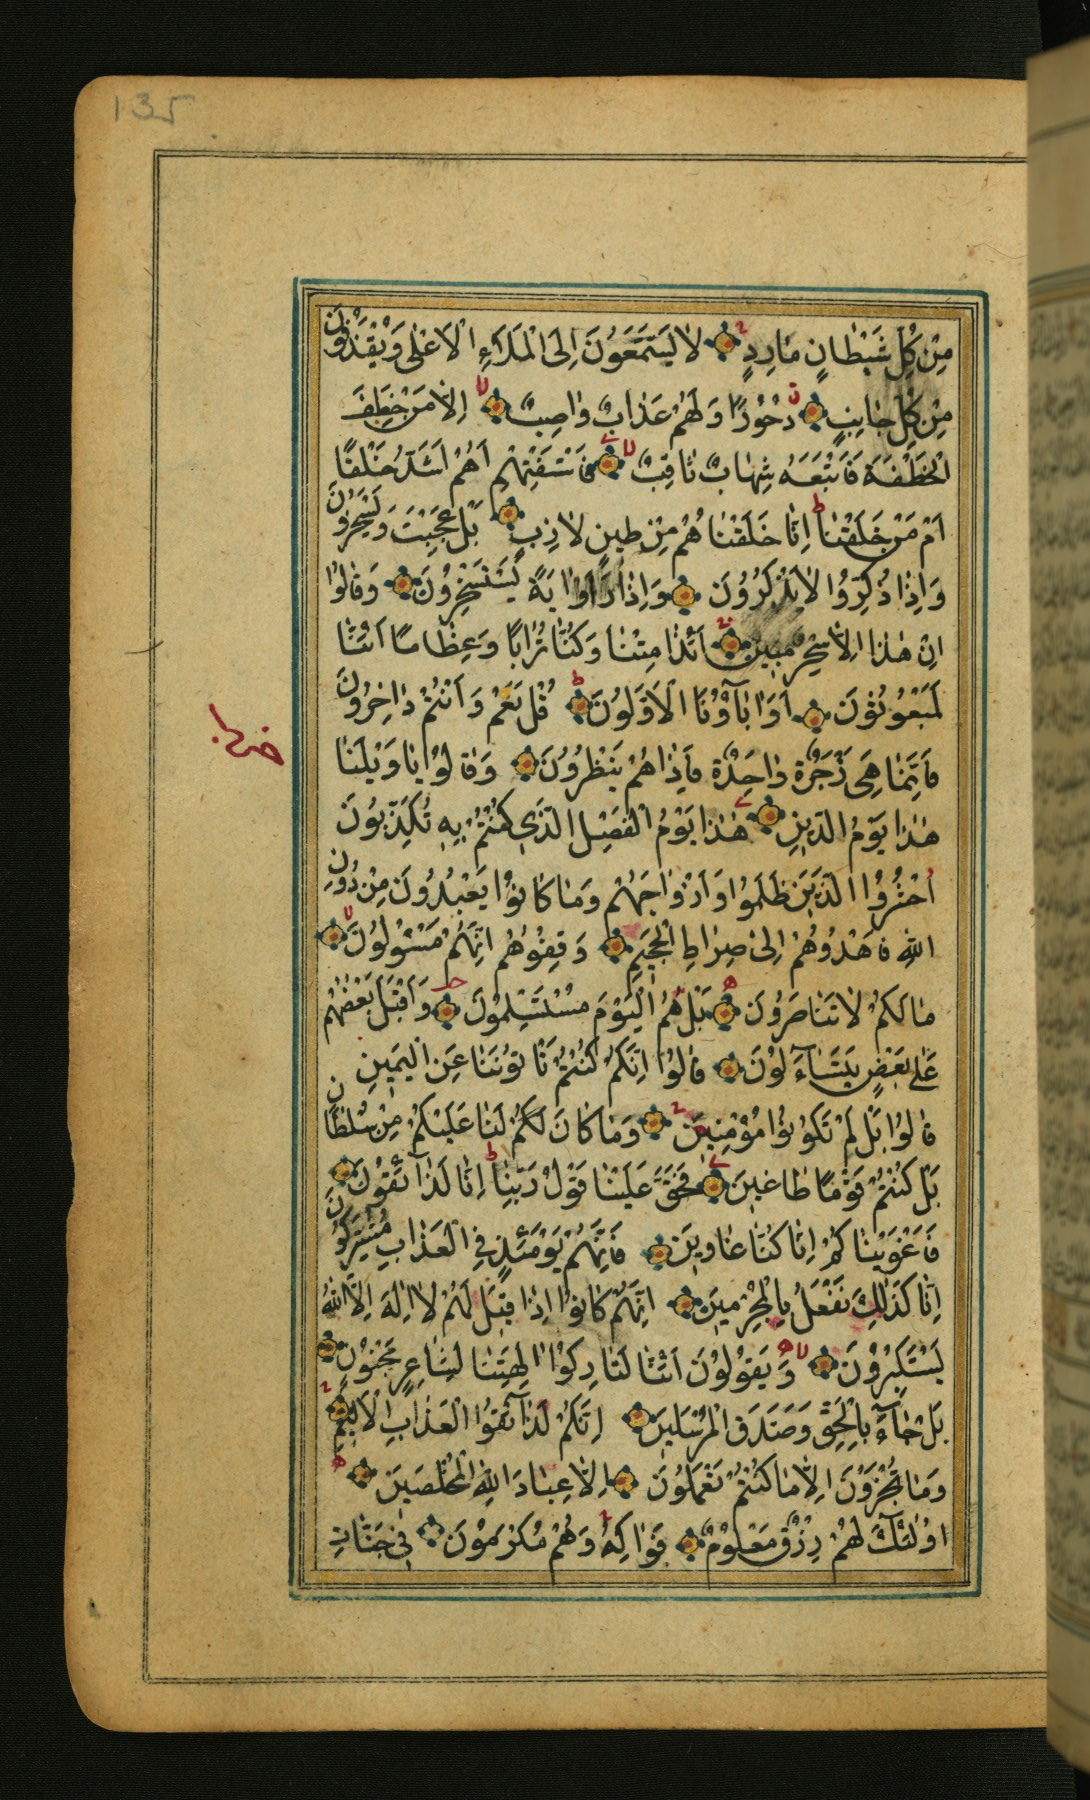 135
مِنْ كُلِّ شَيْطَانٍ مَارِدٍ لَا يَسَّمَّعُونَ اِلَى الْمَلَاءِ الْاَعْلٰى وَيُقْذَفُونَ
مِنْ كُلِّ جَانِبٍ دُحُورًا وَلَهُمْ عَذَابٌ وَاصِبٌ اِلَّا مَنْ خَطِفَ
الْخَطْفَةَ فَاَتْبَعَهُ شِهَابٌ ثَاقِبٌ فَاسْتَفْتِهِمْ اَهُمْ اَشَدُّ خَلْقًا
اَمْ مَنْ خَلَقْنَا اِنَّا خَلَقْنَاهُمْ مِنْ طِينٍ لَازِبٍ بَلْ عَجِبْتَ وَيَسْخَرُونَ
وَاِذَا ذُكِّرُوا لَا يَذْكُرُونَ وَاِذَا رَاَوْا اٰيَةً يَسْتَسْخِرُونَ وَقَالُوا
اِنْ هٰذَا اِلَّا سِحْرٌ مُبِينٌ ءَاِذَا مِتْنَا وَكُنَّا تُرَابًا وَعِظَامًا ءَاِنَّا
لَمَبْعُوثُونَ اَوَاٰبَاؤُنَا الْاَوَّلُونَ قُلْ نَعَمْ وَاَنْتُمْ دَاخِرُونَ
فَاِنَّمَا هِيَ زَجْرَةٌ وَاحِدَةٌ فَاِذَا هُمْ يَنْظُرُونَ وَقَالُوا يَا وَيْلَنَا
هٰذَا يَوْمُ الدِّينِ هٰذَا يَوْمُ الْفَصْلِ الَّذِي كُنْتُمْ بِهِ تُكَذِّبُونَ
اُحْشُرُوا الَّذِينَ ظَلَمُوا وَاَزْوَاجَهُمْ وَمَا كَانُوا يَعْبُدُونَ مِنْ دُونِ
اللهِ فَاهْدُوهُمْ اِلٰى صِرَاطِ الْجَحِيمِ وَقِفُوهُمْ اِنَّهُمْ مَسْئُولُونَ
مَا لَكُمْ لَا تَنَاصَرُونَ بَلْ هُمُ الْيَوْمَ مُسْتَسْلِمُونَ وَاَقْبَلَ بَعْضُهُمْ
عَلٰى بَعْضٍ يَتَسَاءَلُونَ قَالُوا اِنَّكُمْ كُنْتُمْ تَاْتُونَنَا عَنِ الْيَمِينِ
قَالُوا بَلْ لَمْ تَكُونُوا مُؤْمِنِينَ وَمَا كَانَ لَنَا عَلَيْكُمْ مِنْ سُلْطَانٍ
بَلْ كُنْتُمْ قَوْمًا طَاغِينَ فَحَقَّ عَلَيْنَا قَوْلُ رَبِّنَا اِنَّا لَذَائِقُونَ
فَاَغْوَيْنَاكُمْ اِنَّا كُنَّا غَاوِينَ فَاِنَّهُمْ يَوْمَئِذٍ فِي الْعَذَابِ مُشْتَرِكُونَ
اِنَّا كَذٰلِكَ نَفْعَلُ بِالْمُجْرِمِينَ اِنَّهُمْ كَانُوا اِذَا قِيلَ لَهُمْ لَا اِلٰهَ اِلَّا اللهُ
يَسْتَكْبِرُونَ وَيَقُولُونَ اَئِنَّا لَتَارِكُوا اٰلِهَتِنَا لِشَاعِرٍ مَجْنُونٍ
بَلْ جَاءَ بِالْحَقِّ وَصَدَّقَ الْمُرْسَلِينَ اِنَّكُمْ لَذَائِقُوا الْعَذَابِ الْاَلِيمِ
وَمَا تُجْزَوْنَ اِلَّا مَا كُنْتُمْ تَعْمَلُونَ اِلَّا عِبَادَ اللهِ الْمُخْلَصِينَ
اُولٰئِكَ لَهُمْ رِزْقٌ مَعْلُومٌ فَوَاكِهُ وَهُمْ مُكْرَمُونَ فِي جَنَّاتِ